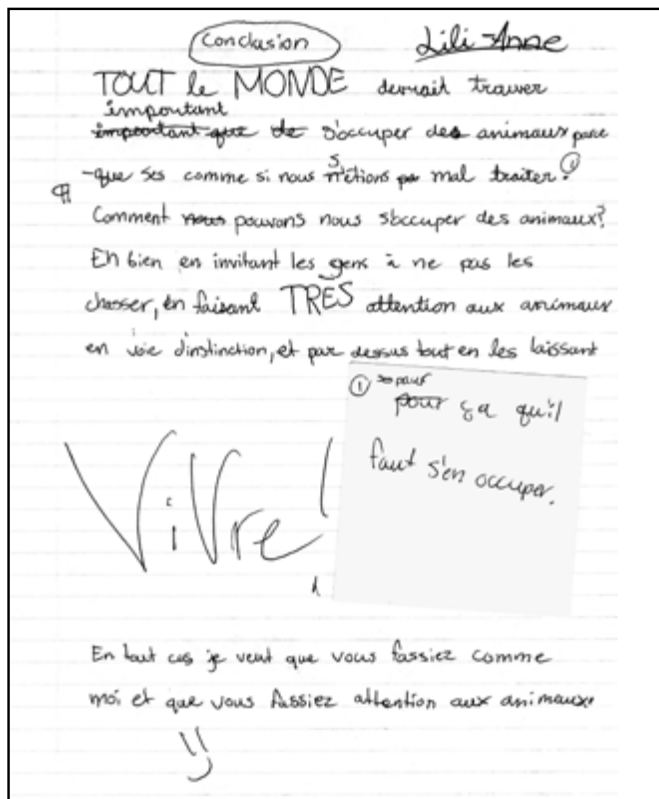 Conclusion Lili-Anne
TOUT le MONDE devrait trouver
important
important que de s'occuper des animaux parce
-que ses comme si nous s'étions mal traiter! ①
Comment nous pouvons nous s'occuper des animaux?
Eh bien en invitant les gens à ne pas les
chasser, en faisant TRES attention aux animaux
en voie d'instinction, et par dessus tout en les laissant
ViVre!
① pour
pour ça qu'il
faut s'en occuper.
En tout cas je veut que vous fassiez comme
moi et que vous fassiez attention aux animaux.